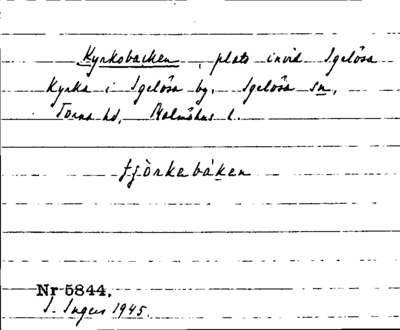 Kyrkobacken, plats invid Igelösa
Kyrka i Igelösa by, Igelösa sn,
Torna hd, Malmöhus l.
tjòrkebáken
Nr 5844.
I. Ingers 1945.